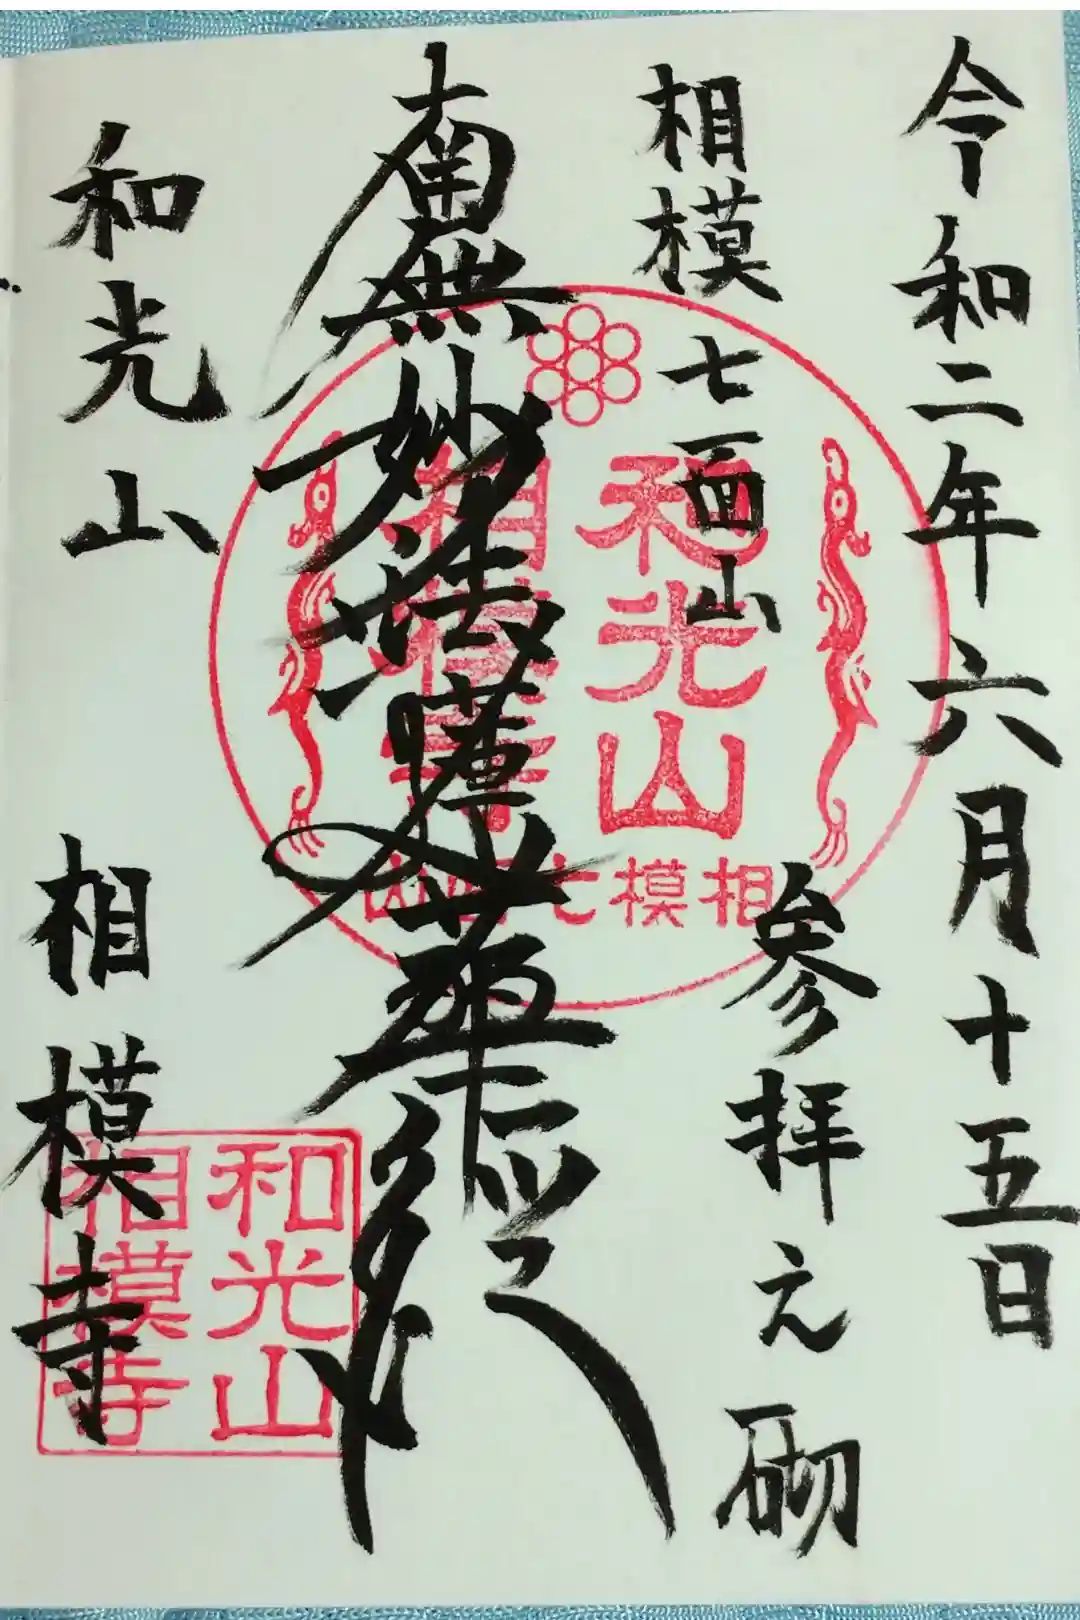 令和二年六月十五日
相模七面山 参拝之砌
南無妙法蓮華経
和光山 相模寺
和光山
相模寺
相模七面山
和光山
相模寺